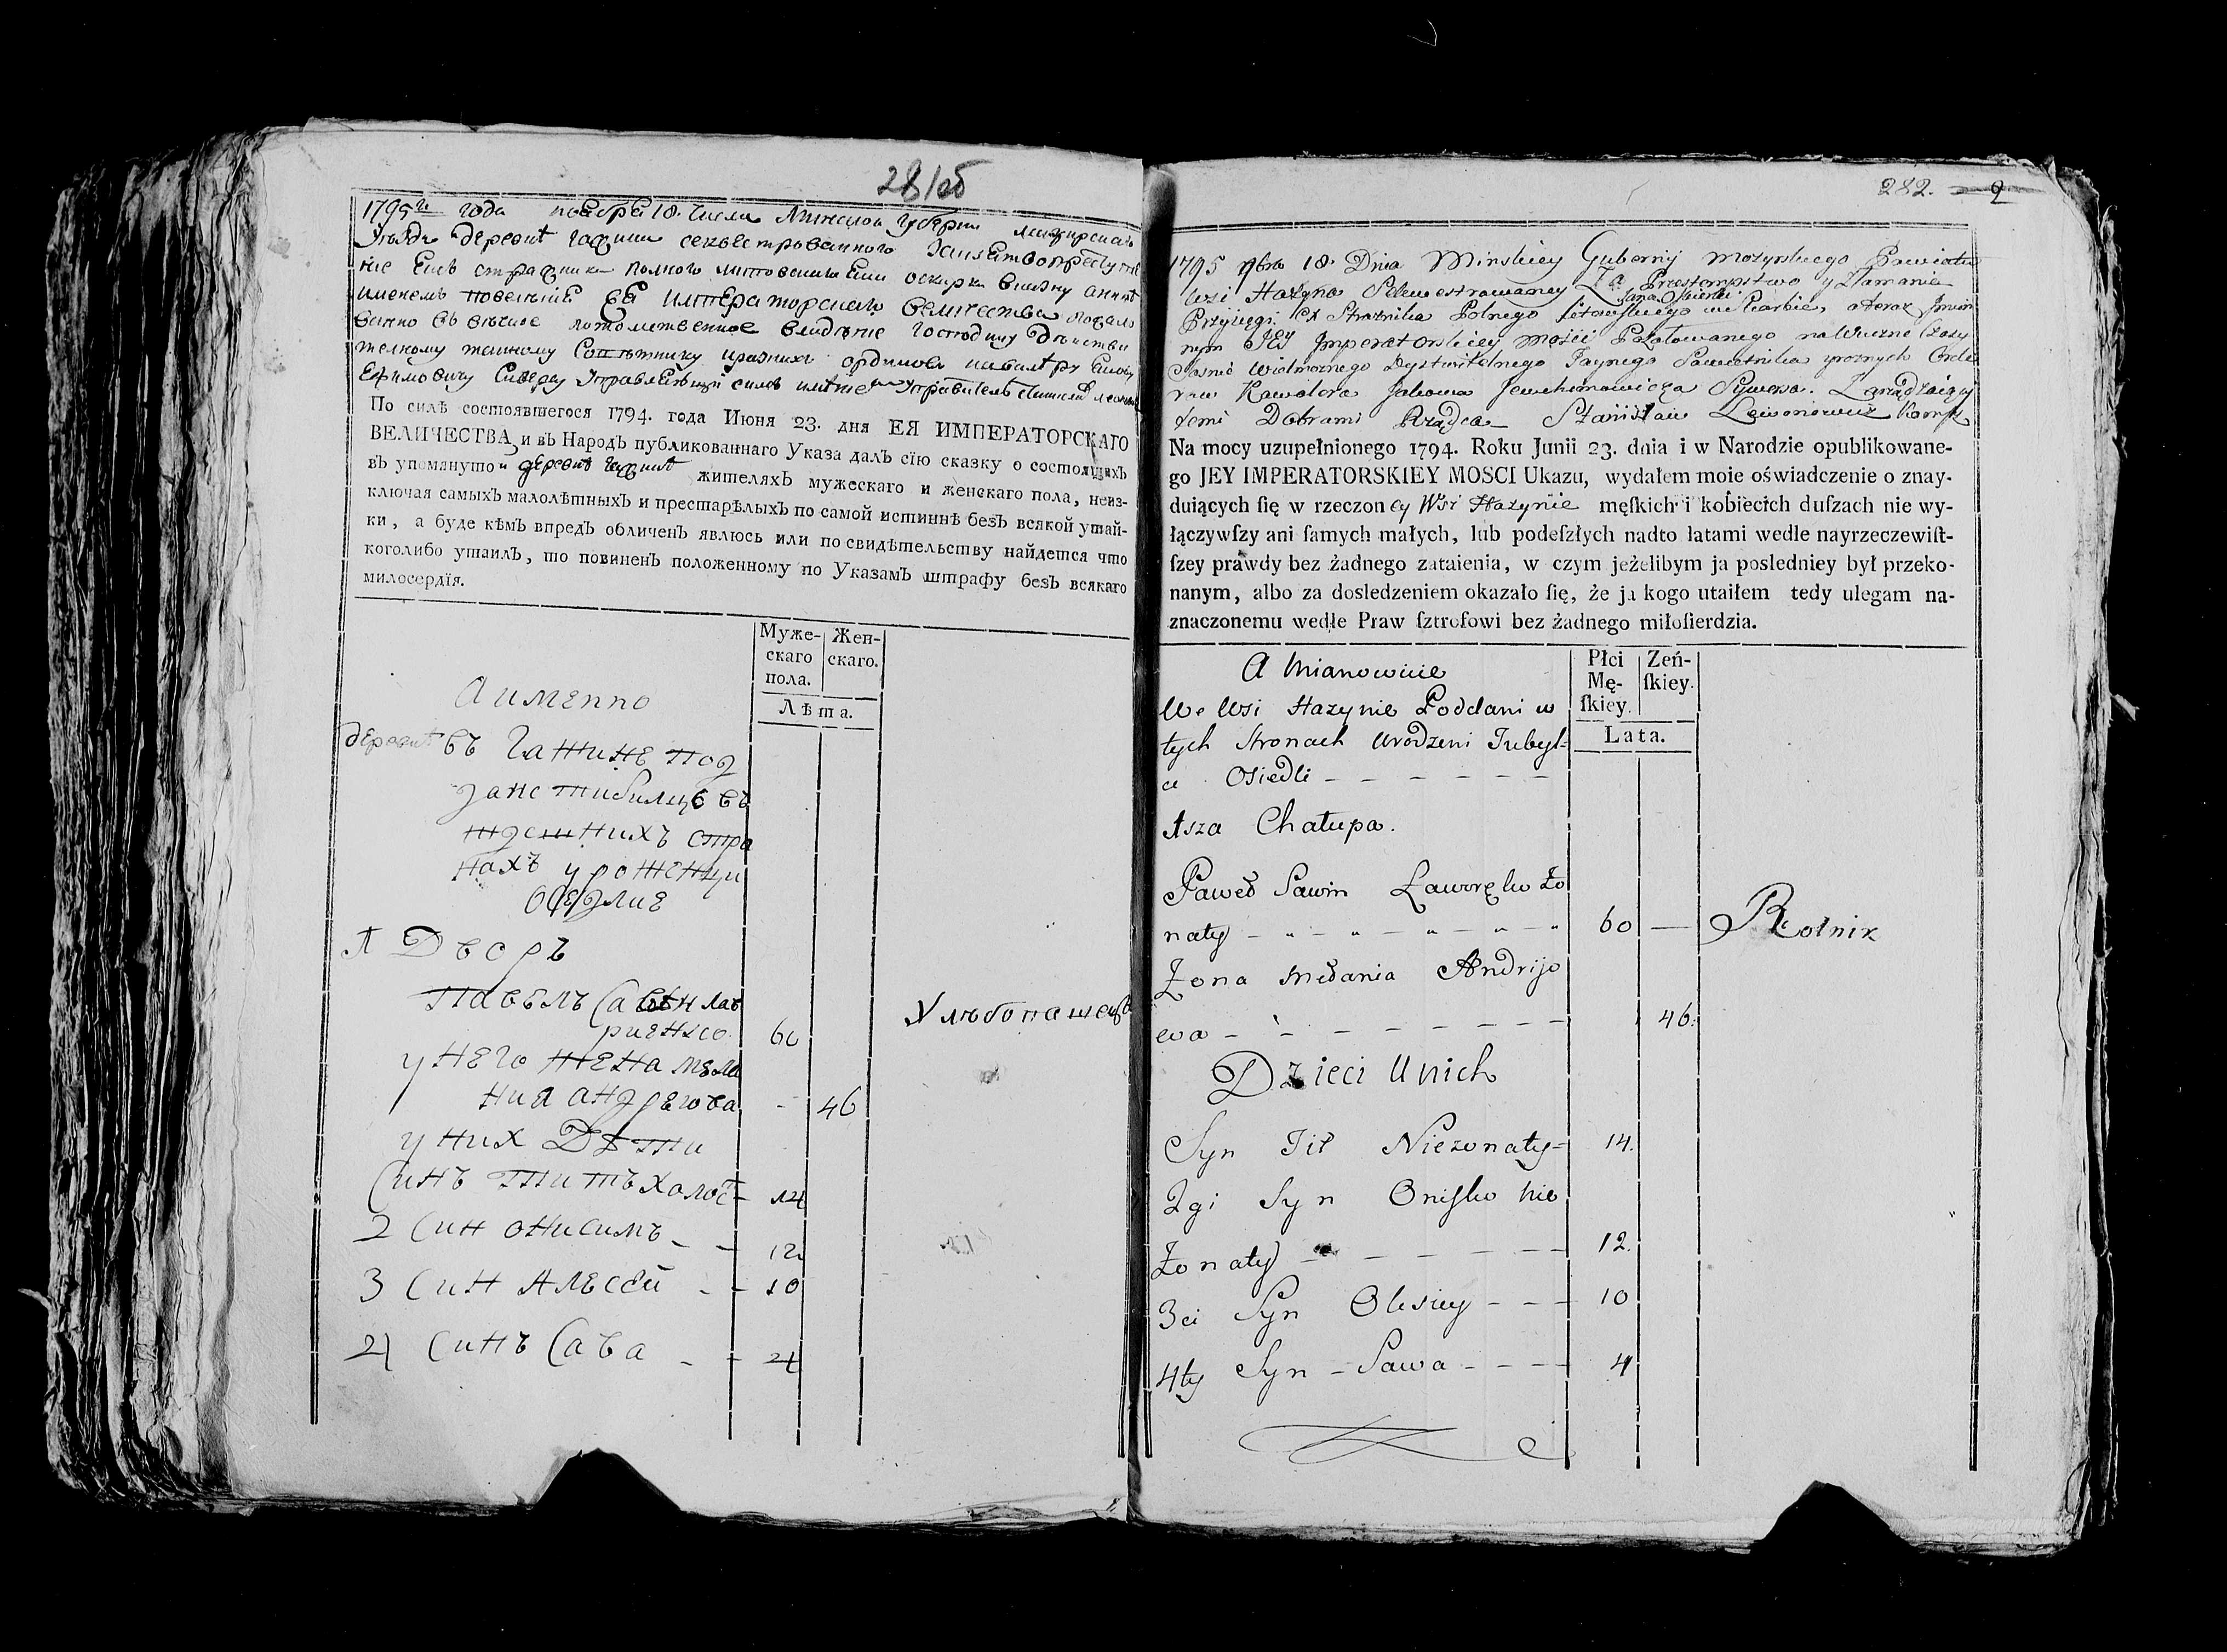 281об
1795го года ноября 18. числа Минской Губернии мозирскаго
уѣзда деревнѣ гажина секвестрованного за клятвопреступле
ние Ексъ стражника полного литовскаго Яна оскирки в казну а нинѣ
именемъ повелѣния ЕЯ императорскаго величества пожало
ванно въ вѣчное потомственное владѣние Господину Дѣйстви
телному тайному Совѣтнику и разнихъ ординовъ кавалѣру Якову
Ефимовичу Сиверсу Управляющий симъ имѣниемъ Управитель
По силѣ состоявшегося 1794. года Июня 23. дня ЕЯ ИМПЕРАТОРСКАГО
ВЕЛИЧЕСТВА и въ Народъ публикованнаго Указа далъ сїю сказку о состоящихъ
въ упомянутой деревнѣ гажинѣ жителяхъ мужескаго и женскаго пола, неиз-
ключая самыхъ малолѣтныхъ и престарѣлыхъ по самой истиннѣ безъ всякой утай-
ки, а буде кѣмъ впредъ обличенъ явлюсь или по свидѣтельству найдется что
коголибо утаилъ, то повиненъ положенному по Указамъ штрафу безъ всякаго
милосердїя.
Муже-
скаго
пола.
Жен-
скаго.
Лѣта.
А именно
деревнѣ въ гажинѣ под
дане тибилци въ
тдешнихъ стра
нахъ уроженци
оседлие
1 Дворъ
Павелъ Савин лав
риенко 60 Хлѣбопашецъ
у него жена мела
ния андреюва - 46
у них Дѣти
Синъ титъ холост - 14
2 Син онисимъ - - 12
3 Син Алексей - - 10
4 Синъ Сава - - 4
282. 2
1795 9bra 18. Dnia Minskiey Gubernij mozyrskiego Powiatu
Wsi Hazyna Sekwestrowaney Za Przestempstwo y Złamanie
Jana Oskierki
Przysięgi Ex Straznika Polnego Litewskiego w Skarbie, a teraz Jmie
nym JEy Jmperatorskiey mości Pozalowanego na Wieczne Czasy
Jasnie Wielmoznego Dystwitelnego Taynego Sowietnika y roznych Orde
row Kawalera Jakowa Jewchimowicza Sywersa. Zarządzaiący
temi Dobrami Rządca Stanisław Lewonowicz
Na mocy uzupełnionego 1794. Roku Junii 23. dnia i w Narodzie opublikowane-
go JEY IMPERATORSKIEY MOSCI Ukazu, wydałem moie oświadczenie o znay-
duiących ſię w rzeczoney Wsi Hazynie męſkich i kobiecich duſzach nie wy-
łączywſzy ani ſamych małych, lub podeſzłych nadto latami wedle nayrzeczewiſt-
ſzey prawdy bez żadnego zataienia, w czym jeżelibym ja posledniey był przeko-
nanym, albo za dosledzeniem okazało ſię, że ja kogo utaiłem tedy ulegam na-
znaczonemu wedle Praw ſztrofowi bez żadnego miłoſierdzia.
Płci
Mę-
ſkiey.
Zeń-
ſkiey.
Lata.
A Mianowicie
We Wsi Hazynie Poddani w
tych Stronach Urodzeni Tubyl=
cy Osiedli - - - - - -
1sza Chałupa.
Paweł Sawin Ławręko Zo
naty - - - - - - 60 — Rolnik
Zona Mełania Andrijo
ewa - - - - - - - 46.
Dzieci Unich
Syn Tit Niezonaty= 14.
2gi Syn Onisko Nie
Zonaty - - - - - - 12.
3ci Syn Olesiey - - - 10
4ty Syn - Sawa - - - - 4